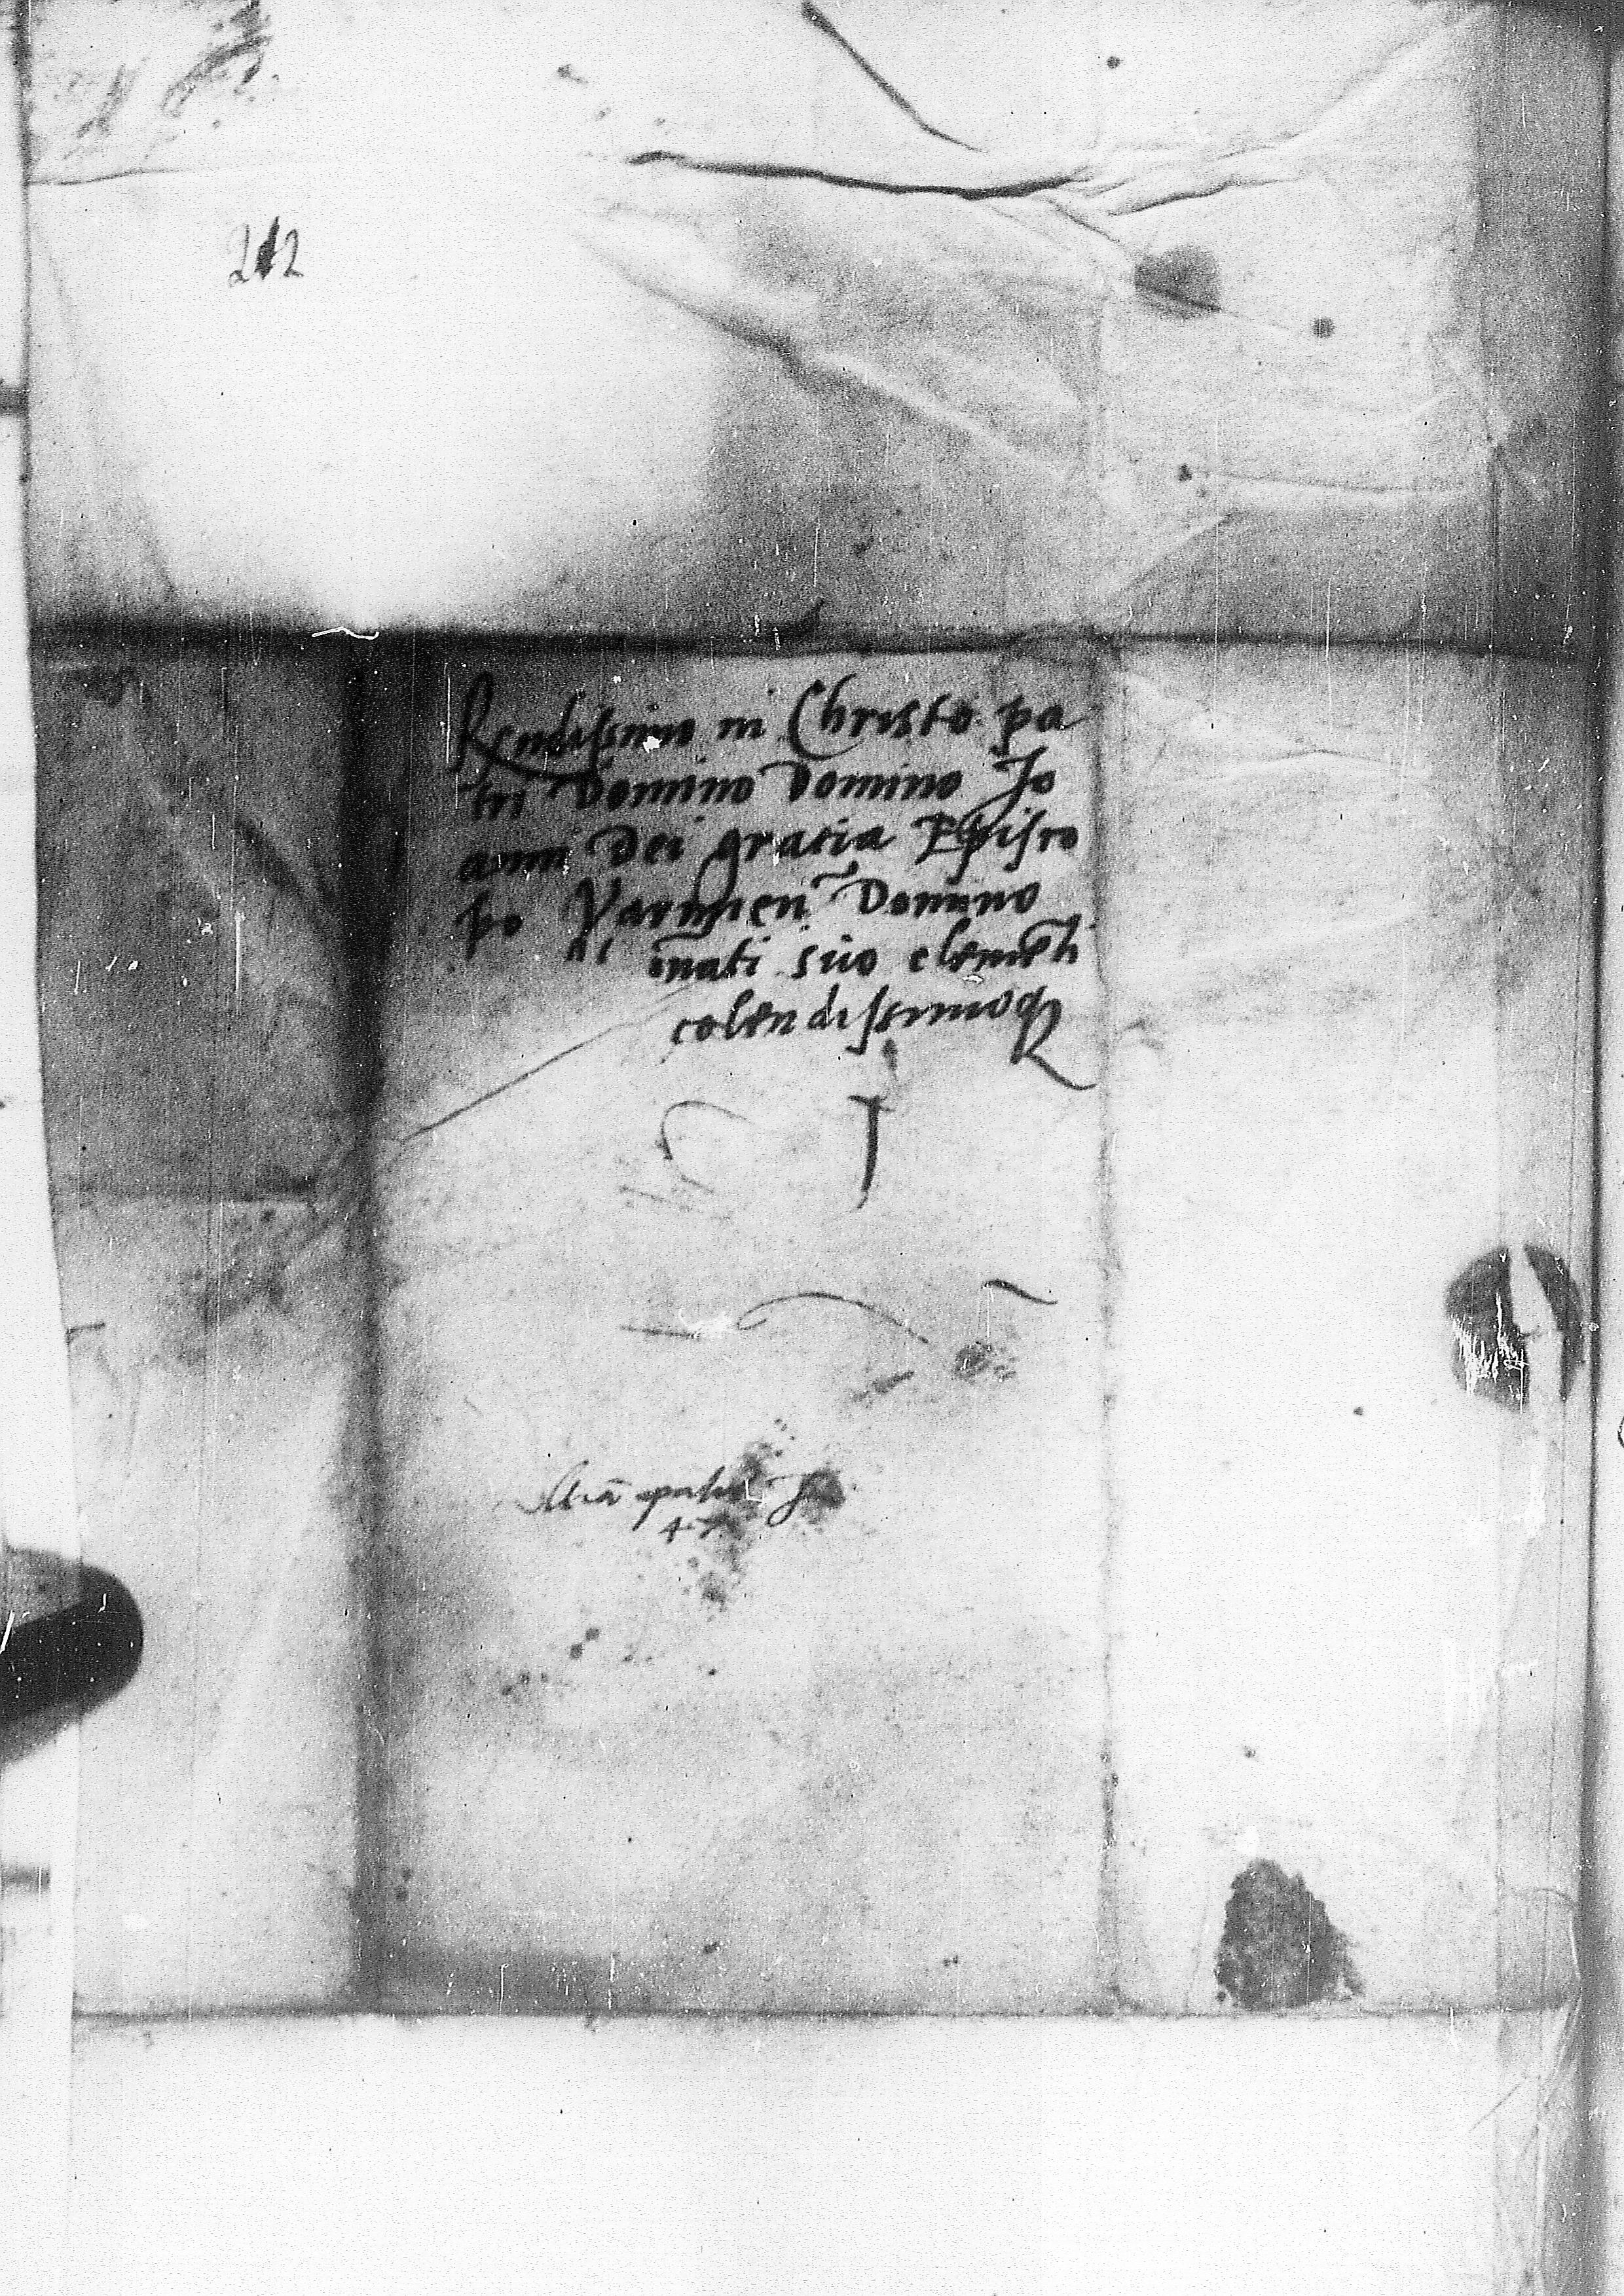 212
Rendissimo in Christo pa
tri Domino Domino Jo
anni Dei gratia Episco
po Varmien̄ Domino
ac
suo clemēti
colendissimoq